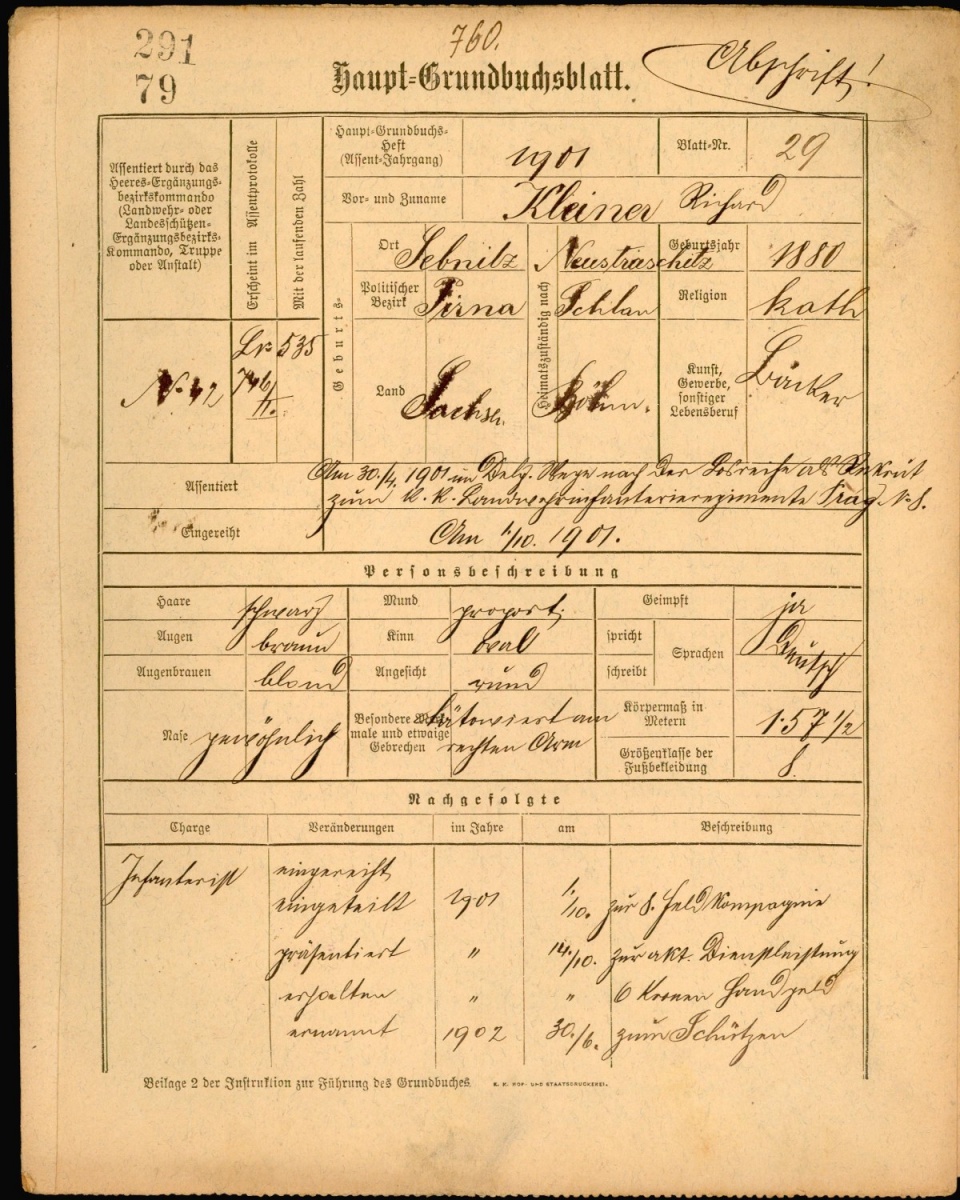 291
79
760.
Haupt-Grundbuchsblatt.
Abschrift!
Assentiert durch das
Heeres-Ergänzungs-
bezirkskommando
(Landwehr- oder
Landesschützen-
Ergänzungsbezirks-
Kommando, Truppe
oder Anstalt)
Erscheint im Assentprotokolle
Mit der laufenden Zahl
Haupt-Grundbuchs-
Heft
(Assent-Jahrgang)
1901
Blatt-Nr.
29
Vor- und Zuname
Kleiner Richard
Geburts-
Ort
Sebnitz
Heimatszuständig nach
Neustraschitz
Geburtsjahr
1880
Politischer
Bezirk
Pirna
Schlan
Religion
kath
Land
Sachsen
Böhm.
Kunst,
Gewerbe,
sonstiger
Lebensberuf
Bäcker
535
Assentiert
Am 30./4. 1901 im Wege nach der Losreihe als Rekrut
zum k. k. Landwehrinfanterieregimente Prag Nr 8.
Eingereiht
Am 1./10. 1901.
Personsbeschreibung
Haare
schwarz
Mund
proport.
Geimpft
ja
Augen
braun
Kinn
oval
spricht
schreibt
Sprachen
Deutsch
Augenbrauen
blond
Angesicht
rund
Nase
gewöhnlich
Besondere Merk-
male und etwaige
Gebrechen
tätowiert am
rechten Arm
Körpermaß in
Metern
1·57 1/2
Größenklasse der
Fußbekleidung
8.
Nachgefolgte
Charge
Veränderungen
im Jahre
am
Beschreibung
Infanterist
eingereiht
eingeteilt 1901 1./10. zur 8. Feldkompagnie
präsentiert " 14./10. zur akt. Dienstleistung
erhalten " " 6 Kronen Handgeld
ernannt 1902 30./6. zum Schützen
Beilage 2 der Instruktion zur Führung des Grundbuches
K. K. HOF- UND STAATSDRUCKEREI.